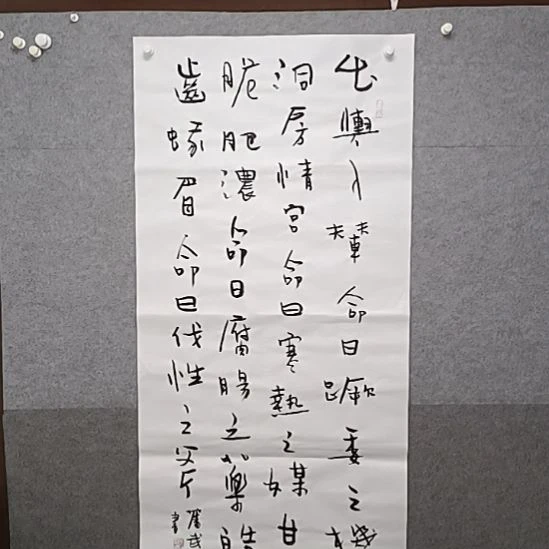 出輿入輦命曰蹶委之機
洞房情宮命曰寒熱之媒甘
脆肥濃命曰腐腸之藥皓
齒蛾眉命曰伐性之斧